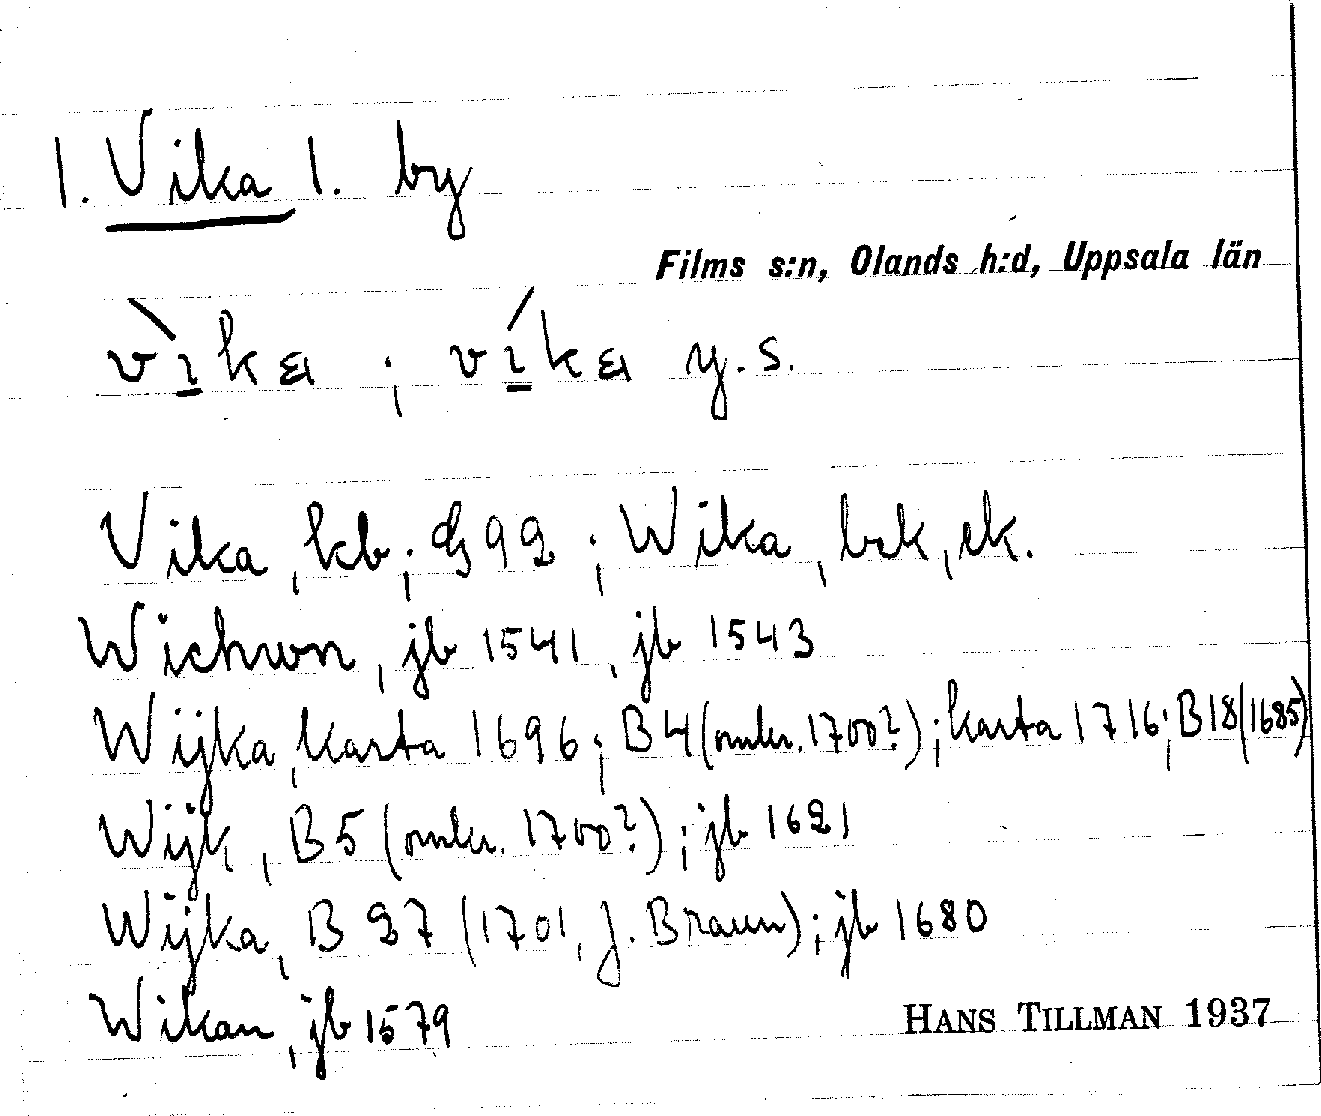 1. Vika 1. by
Films s:n, Olands h:d, Uppsala län
vìka ; víka y.s.
Vika, kb; G92; Wika, bek, ek.
Wichwn, jb 1541, jb 1543
Wijka, karta 1696; B4 (omkr. 1700?); karta 1716; B18 (1685)
Wijk, B5 (omkr. 1700?); jb 1621
Wijka, B 27 (1701, J. Braun); jb 1680
Wikan, jb 1579
HANS TILLMAN 1937